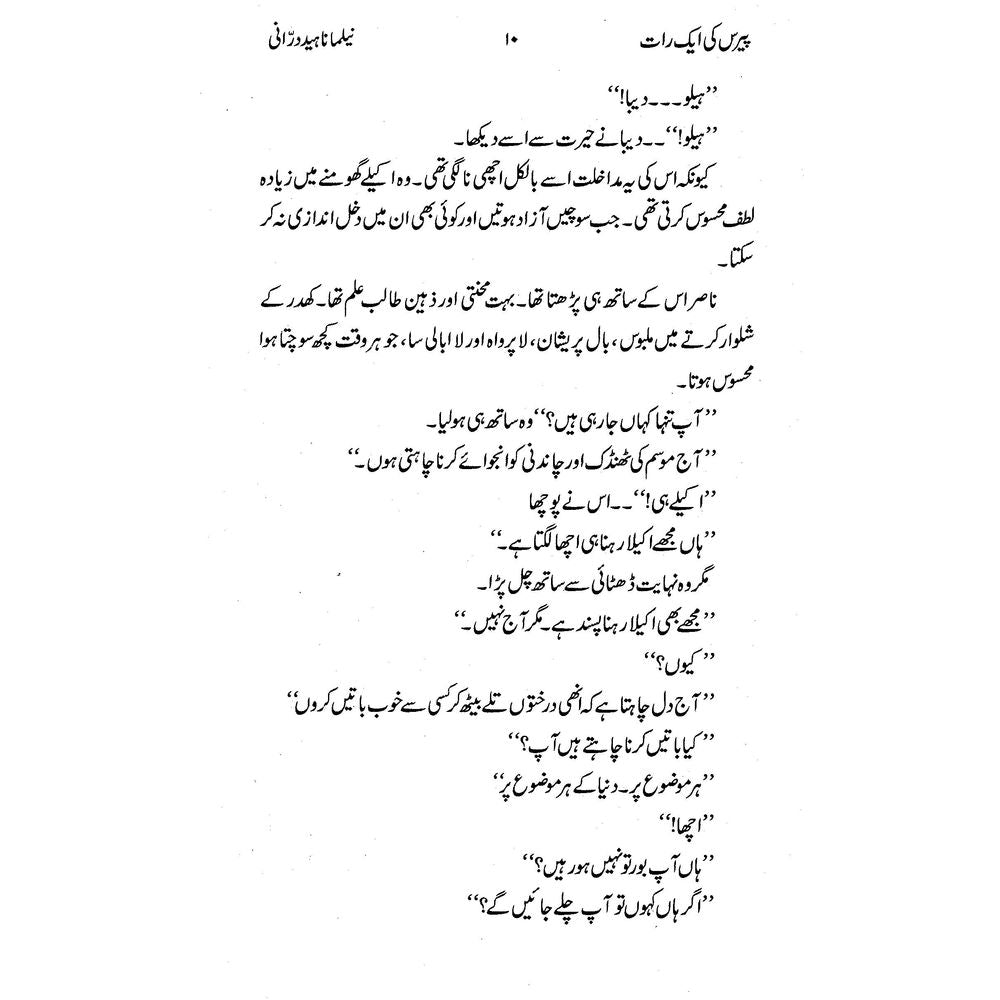 پیرس کی ایک رات ۱۰ نیلما ناہید درّانی
’’ہیلو۔۔۔دیبا!‘‘
’’ہیلو!‘‘۔۔دیبا نے حیرت سے اسے دیکھا۔
کیونکہ اس کی یہ مداخلت اسے بالکل اچھی نا لگی تھی۔ وہ اکیلے گھومنے میں زیادہ
لطف محسوس کرتی تھی۔ جب سوچیں آزاد ہوتیں اور کوئی بھی ان میں دخل اندازی نہ کر
سکتا۔
ناصر اس کے ساتھ ہی پڑھتا تھا۔ بہت محنتی اور ذہین طالب علم تھا۔ کھدر کے
شلوار کرتے میں ملبوس، بال پریشان، لا پرواہ اور لا ابالی سا، جو ہر وقت کچھ سوچتا ہوا
محسوس ہوتا۔
’’آپ تنہا کہاں جا رہی ہیں؟‘‘ وہ ساتھ ہی ہو لیا۔
’’آج موسم کی ٹھنڈک اور چاندنی کو انجوائے کرنا چاہتی ہوں۔‘‘
’’اکیلے ہی!‘‘۔۔اس نے پوچھا
’’ہاں مجھے اکیلا رہنا ہی اچھا لگتا ہے۔‘‘
مگر وہ نہایت ڈھٹائی سے ساتھ چل پڑا۔
’’مجھے بھی اکیلا رہنا پسند ہے۔ مگر آج نہیں۔‘‘
’’کیوں؟‘‘
’’آج دل چاہتا ہے کہ انھی درختوں تلے بیٹھ کر کسی سے خوب باتیں کروں‘‘
’’کیا باتیں کرنا چاہتے ہیں آپ؟‘‘
’’ہر موضوع پر۔ دنیا کے ہر موضوع پر‘‘
’’اچھا!‘‘
’’ہاں آپ بور تو نہیں ہو رہیں؟‘‘
’’اگر ہاں کہوں تو آپ چلے جائیں گے؟‘‘